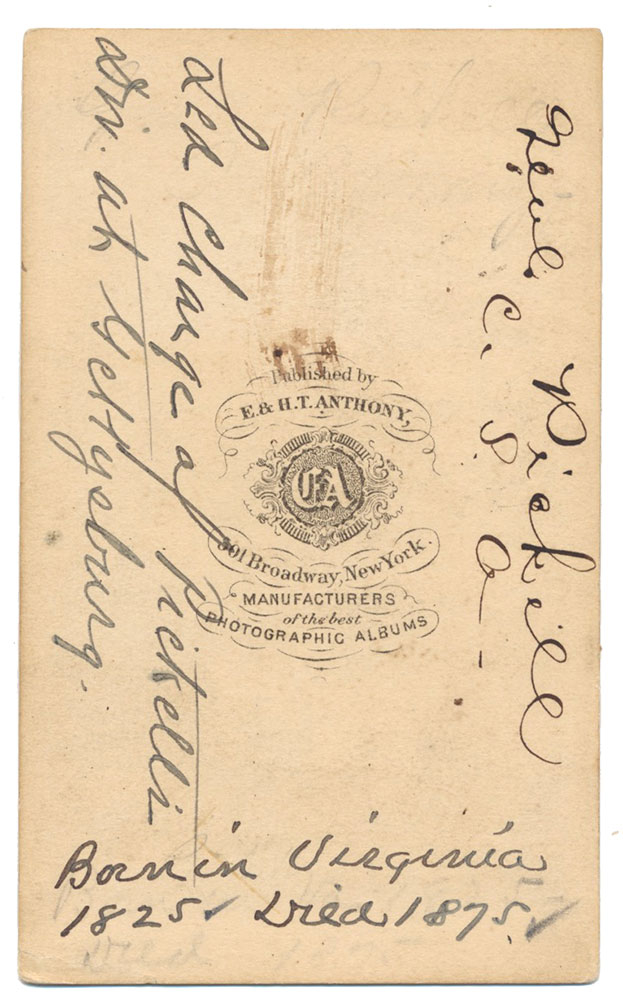 Genl. Pickell
C. S. A–
Led Charge of Pickelli
Div. at Gettysburg.
Published by
E. & H. T. ANTHONY,
EA
501 Broadway, New York.
MANUFACTURERS
of the best
PHOTOGRAPHIC ALBUMS
Born in Virginia
1825. Died 1875.
Died